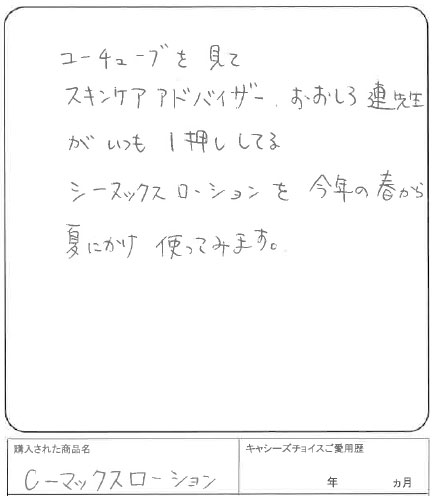 ユーチューブを見て
スキンケアアドバイザー、おおしろ連先生
がいつも1押ししてる
シーマックスローションを今年の春から
夏にかけ使ってみます。
購入された商品名
キャシーズチョイスご愛用歴
Cーマックスローション
年 ヵ月